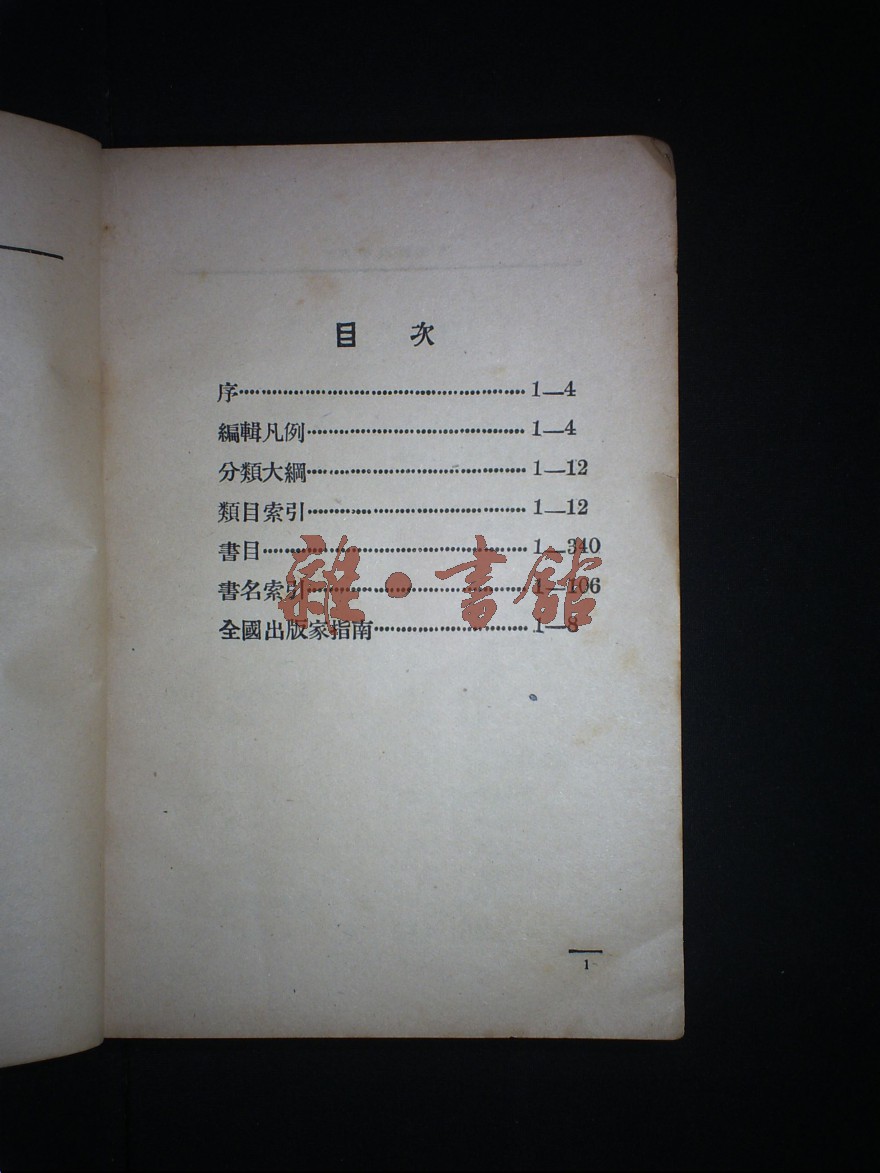 目 次
序 1—4
編輯凡例 1—4
分類大綱 1—12
類目索引 1—12
書目 1—340
書名索引 1—106
全國出版家指南 1—8
雜·書館
1